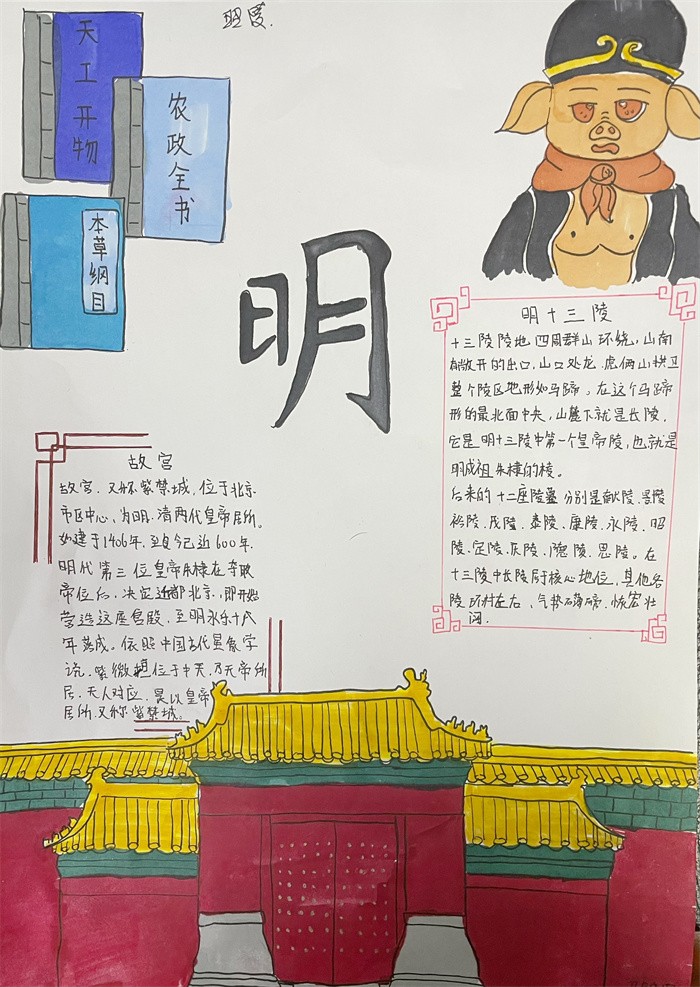 天工开物
农政全书
本草纲目
明
明十三陵
十三陵陵地四周群山环绕,山南
敞开的出口,山口处龙.虎俩山拱卫
整个陵区地形如马蹄。在这个马蹄
形的最北面中央,山麓下就是长陵,
它是明十三陵中第一个皇帝陵,也就是
明成祖朱棣的棱。
后来的十二座陵墓分别是献陵.景陵
裕陵.茂陵.泰陵、康陵.永陵.昭
陵.定陵.庆陵.德陵.思陵。在
十三陵中长陵居核心地位,其他各
陵环村左右、气势磅礴,恢宏壮
阔.
故宫
故宫.又称紫禁城,位于北京
市区中心,为明.清两代皇帝居所。
始建于1406年,至今已近600年.
明代第三位皇帝朱棣在夺取
帝位后,决定迁都北京,即开始
营造这座宫殿,至明永乐十八
年落成。依照中国古代星象学
说,紫微垣位于中天,乃天帝所
居.天人对应,是以皇帝
居所.又称紫禁城。